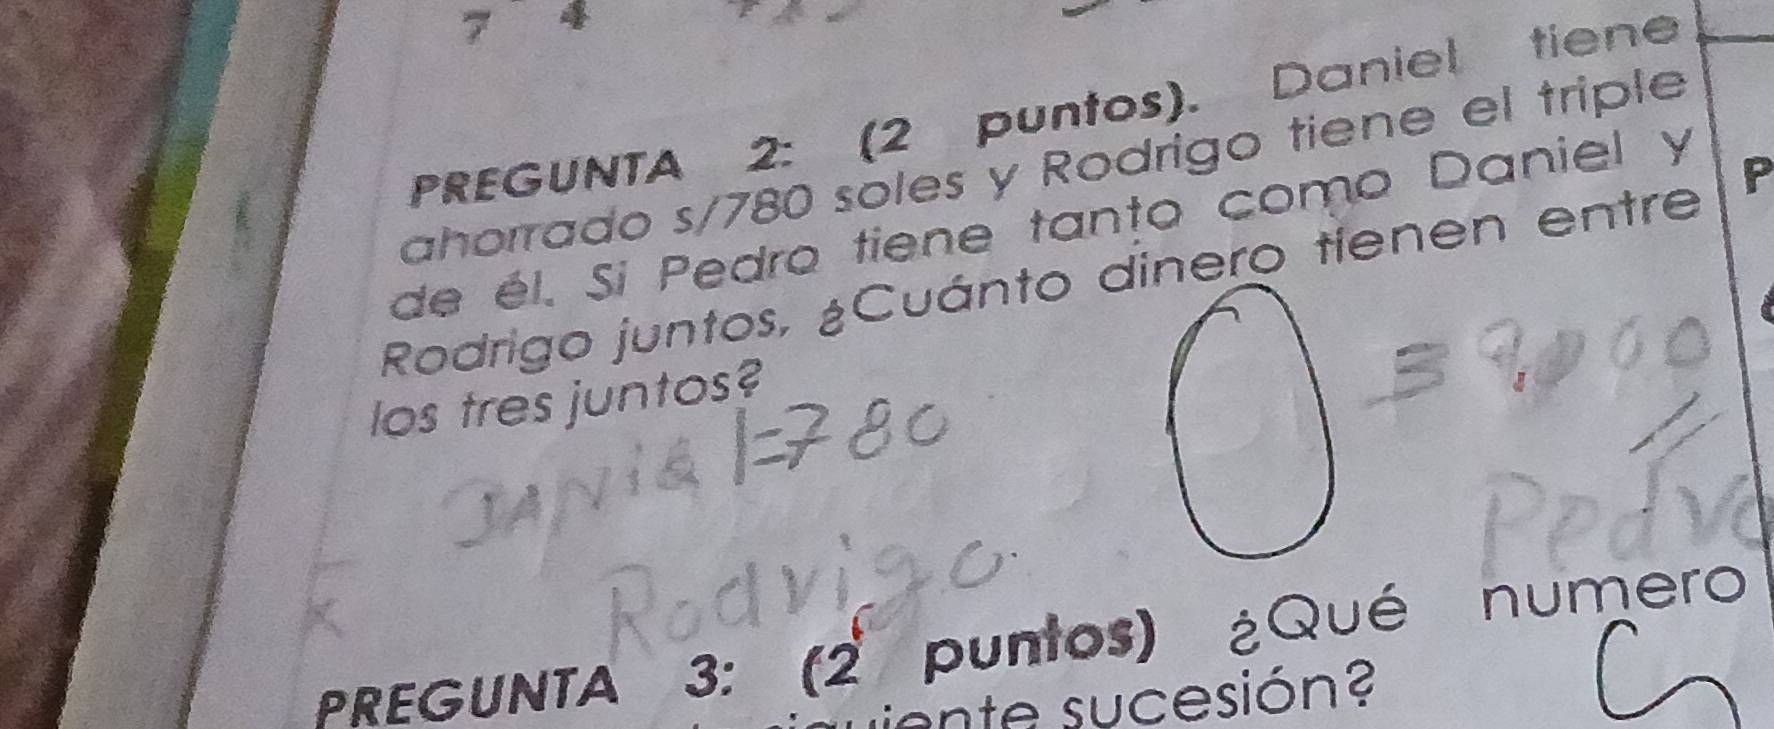 7 4
PREGUNTA 2: (2 puntos). Daniel tiene
ahorrado s/780 soles y Rodrigo tiene el triple
de él. Si Pedro tiene tanto como Daniel y
Rodrigo juntos, ¿Cuánto dinero tienen entre
los tres juntos?
P
DANiel=780
Rodrigo
Pedro
PREGUNTA 3: (2 puntos) ¿Qué numero
sucesión?